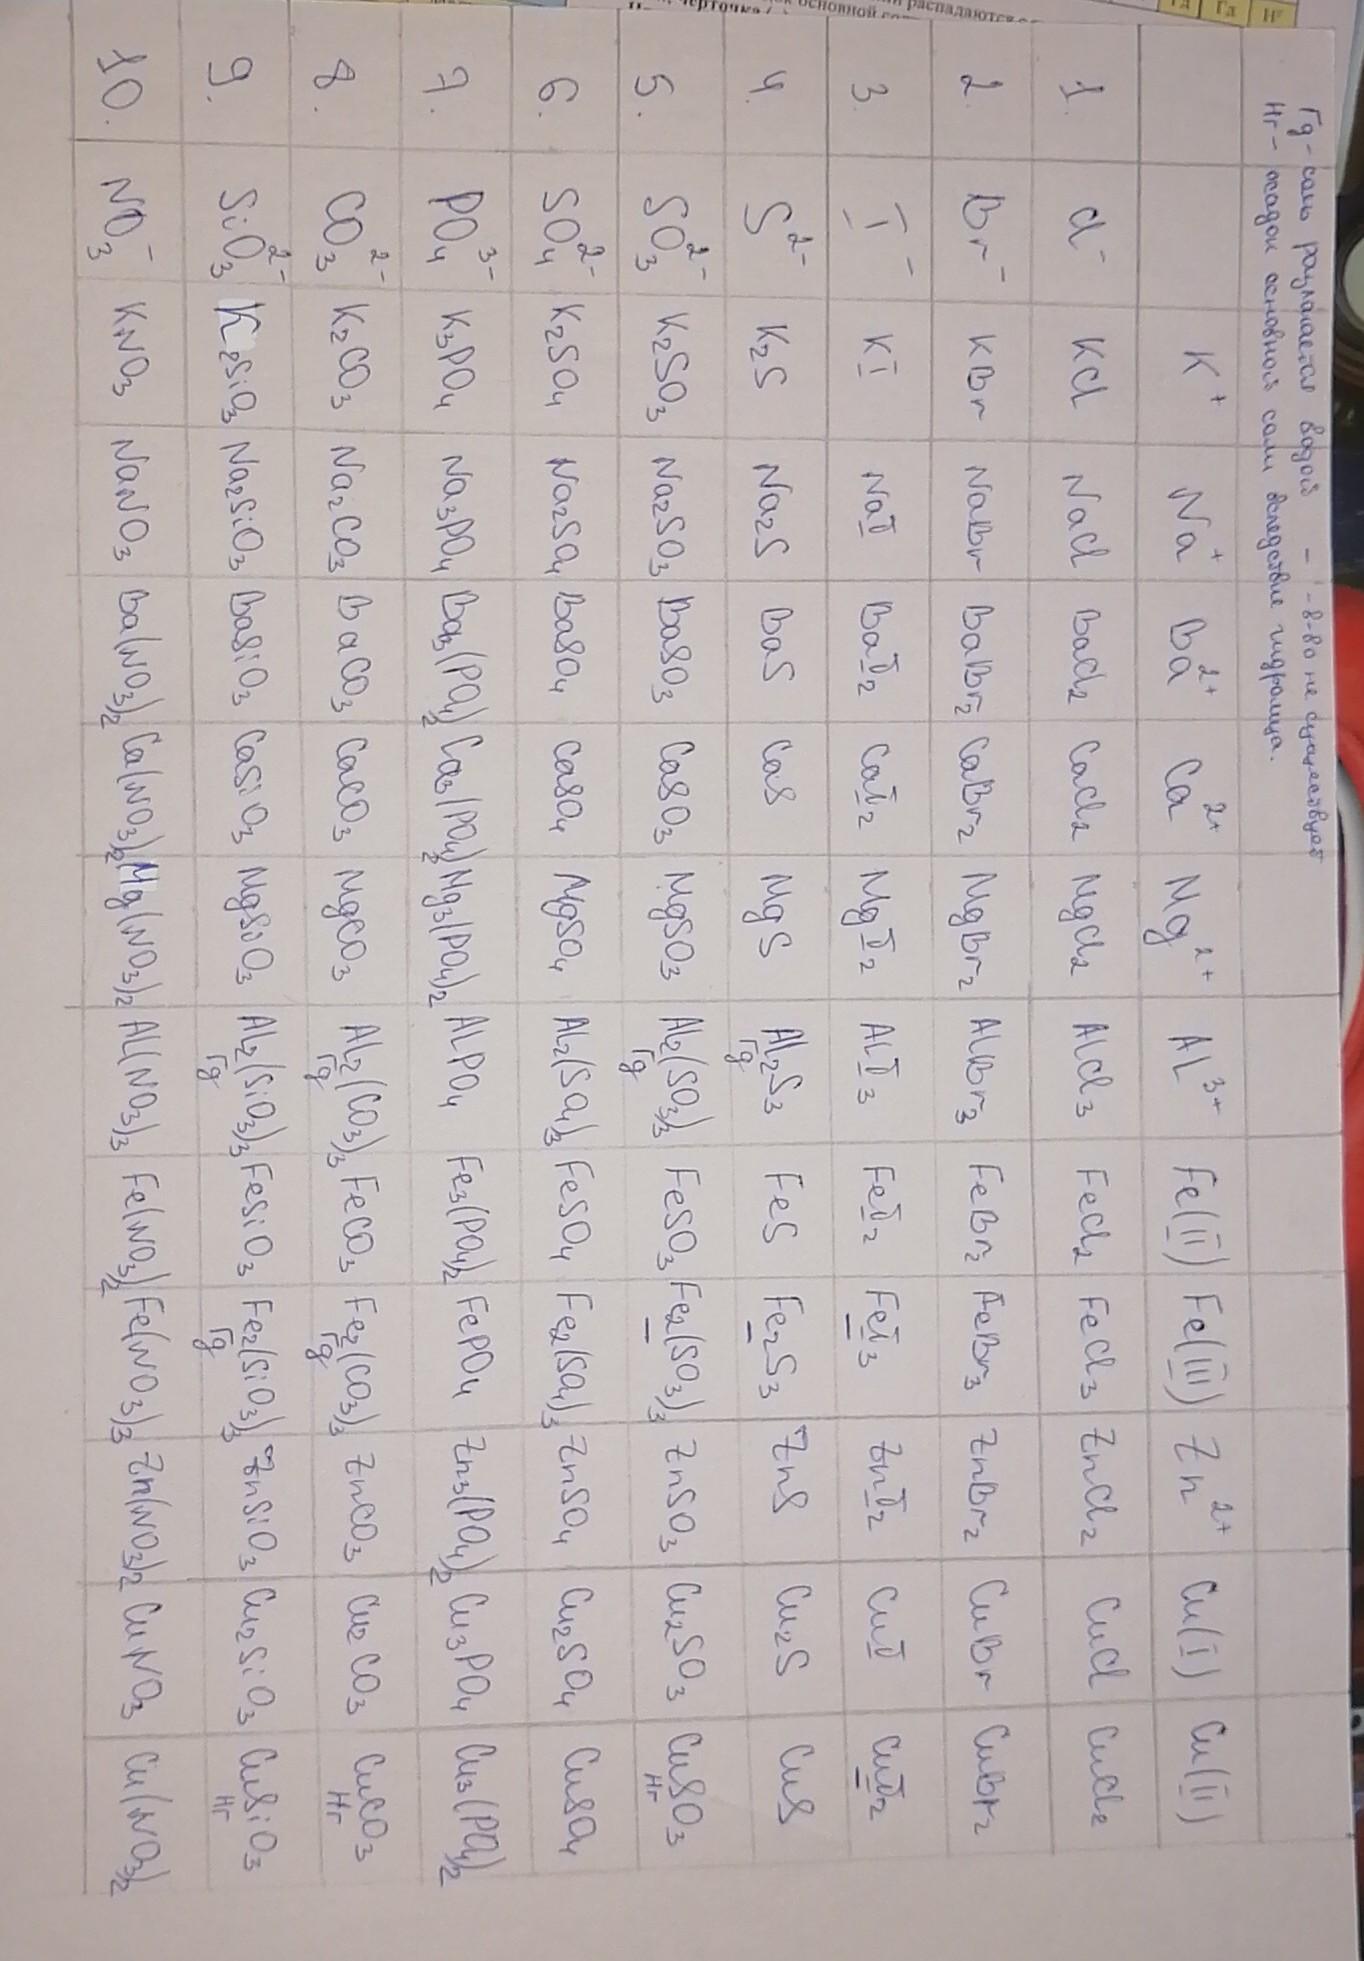 распадаются
основной
Гд Гд Нг
Гд - соль разлагается водой – - в-во не существует
Нг - осадок основной соли вследствие гидролиза.
K⁺ Na⁺ Ba²⁺ Ca²⁺ Mg²⁺ Al³⁺ Fe(II) Fe(III) Zn²⁺ Cu(I) Cu(II)
1. Cl⁻ KCl NaCl BaCl₂ CaCl₂ MgCl₂ AlCl₃ FeCl₂ FeCl₃ ZnCl₂ CuCl CuCl₂
2. Br⁻ KBr NaBr BaBr₂ CaBr₂ MgBr₂ AlBr₃ FeBr₂ FeBr₃ ZnBr₂ CuBr CuBr₂
3. I⁻ KI NaI BaI₂ CaI₂ MgI₂ AlI₃ FeI₂ FeI₃ ZnI₂ CuI CuI₂
– –
4. S²⁻ K₂S Na₂S BaS CaS MgS Al₂S₃ FeS Fe₂S₃ ZnS Cu₂S CuS
Гд –
5. SO₃²⁻ K₂SO₃ Na₂SO₃ BaSO₃ CaSO₃ MgSO₃ Al₂(SO₃)₃ FeSO₃ Fe₂(SO₃)₃ ZnSO₃ Cu₂SO₃ CuSO₃
Гд – Нг
6. SO₄²⁻ K₂SO₄ Na₂SO₄ BaSO₄ CaSO₄ MgSO₄ Al₂(SO₄)₃ FeSO₄ Fe₂(SO₄)₃ ZnSO₄ Cu₂SO₄ CuSO₄
7. PO₄³⁻ K₃PO₄ Na₃PO₄ Ba₃(PO₄)₂ Ca₃(PO₄)₂ Mg₃(PO₄)₂ AlPO₄ Fe₃(PO₄)₂ FePO₄ Zn₃(PO₄)₂ Cu₃PO₄ Cu₃(PO₄)₂
8. CO₃²⁻ K₂CO₃ Na₂CO₃ BaCO₃ CaCO₃ MgCO₃ Al₂(CO₃)₃ FeCO₃ Fe₂(CO₃)₃ ZnCO₃ Cu₂CO₃ CuCO₃
Гд Гд Нг
9. SiO₃²⁻ K₂SiO₃ Na₂SiO₃ BaSiO₃ CaSiO₃ MgSiO₃ Al₂(SiO₃)₃ FeSiO₃ Fe₂(SiO₃)₃ ZnSiO₃ Cu₂SiO₃ CuSiO₃
Гд Гд Нг
10. NO₃⁻ KNO₃ NaNO₃ Ba(NO₃)₂ Ca(NO₃)₂ Mg(NO₃)₂ Al(NO₃)₃ Fe(NO₃)₂ Fe(NO₃)₃ Zn(NO₃)₂ CuNO₃ Cu(NO₃)₂